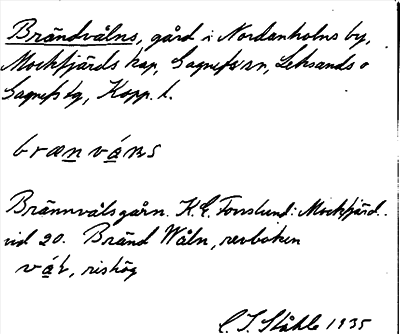 Brändvålns, gård i Nordanholns by,
Mockfjärds kap, Gagnefs sn, Leksands o
Gagnefs tg, Kopp. l.
brænvåns
Brännvålsgårn. K.E. Forslund: Mockfjärd.
sid 20. Bränd Wåln, revboken
våɫ, rishög
C. I. Ståhle 1935